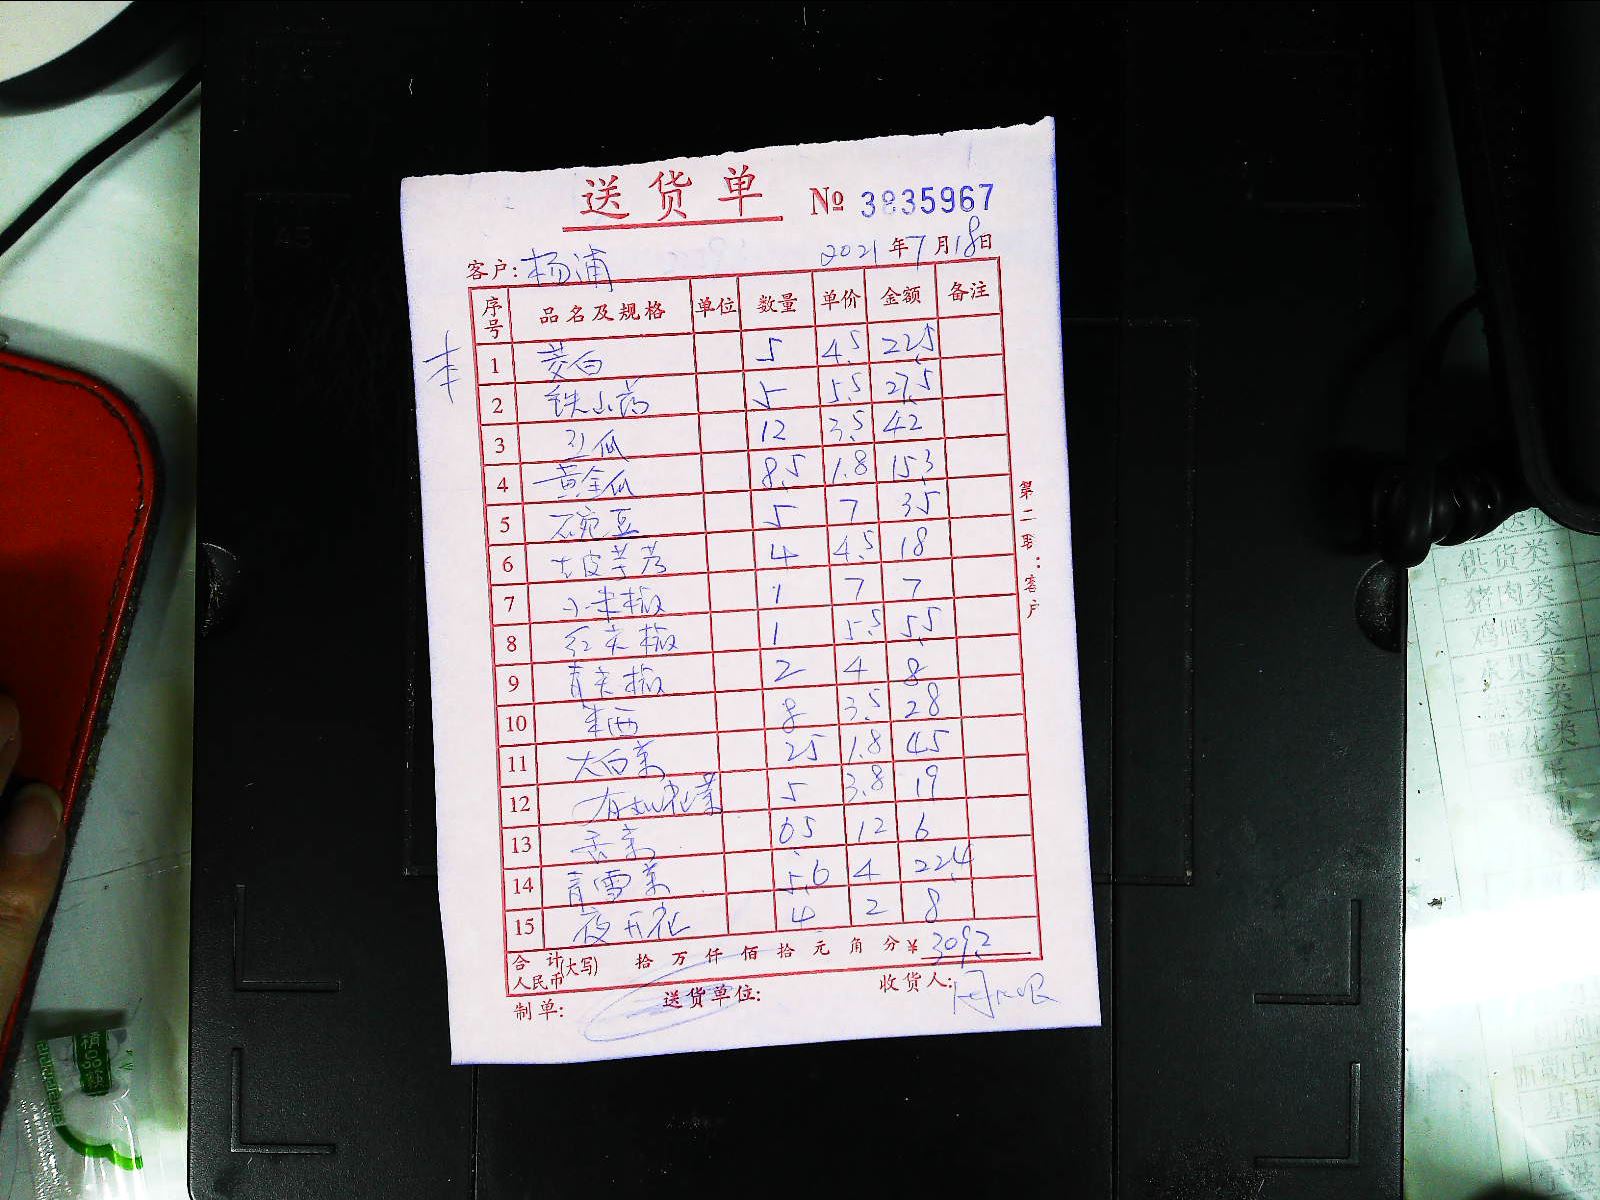 送货单 № 3835967
客户: 杨浦 2021年7月18日
序号 品名及规格 单位 数量 单价 金额 备注
1 茭白 5 4.5 22.5
2 铁山药 5 5.5 27.5
3 瓜 12 3.5 42
4 黄金瓜 8.5 1.8 15.3
5 豌豆 5 7 35
6 皮芋艿 4 4.5 18
7 小米椒 1 7 7
8 红尖椒 1 5.5 5.5
9 青尖椒 2 4 8
10 8 3.5 28
11 大白菜 25 1.8 45
12 有机花菜 5 3.8 19
13 0.5 12 6
14 青雪菜 5.6 4 22.4
15 夜开花 4 2 8
合计人民币(大写) 拾 万 仟 佰 拾 元 角 分 ¥ 309.2
制单: 送货单位: 收货人:
第二联:客户
供货类
猪肉类
鸡鸭类
水果类
蔬菜类
鲜花类
精品